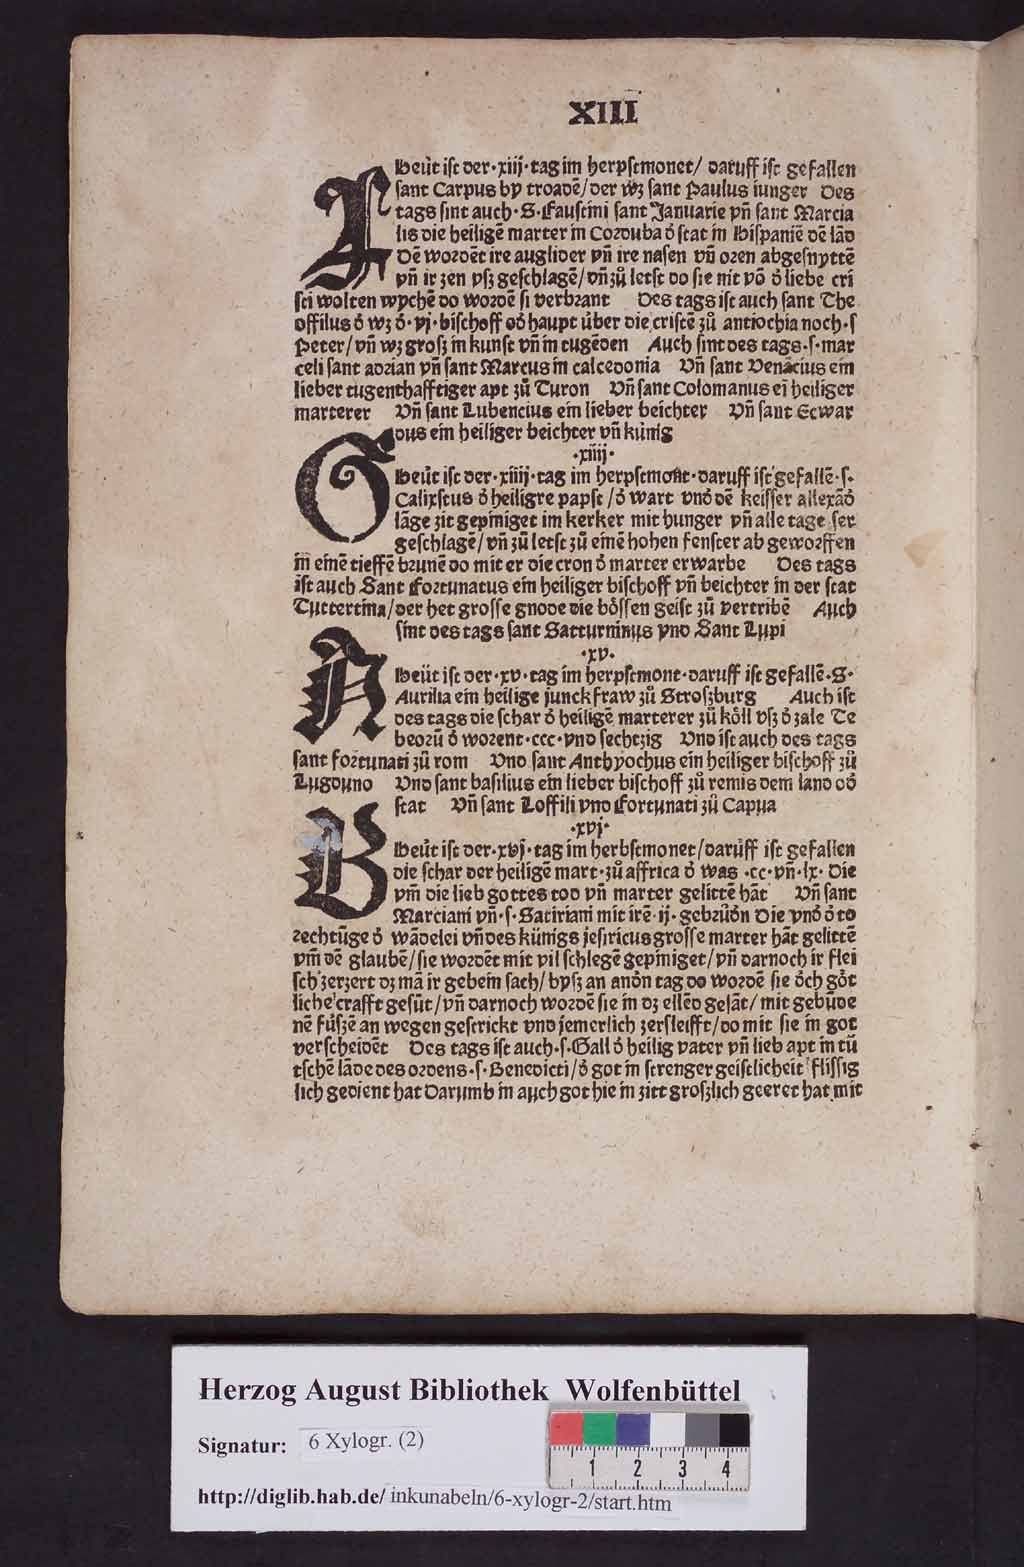 XIII
Heüt iſt der·xiij·tag im herpſtmonet/ daruff iſt gefallen
ſant Carpus by troadē/ der wz ſant Paulus iunger Des
tags ſint auch·S·Fauſtini ſant Januarie vn̄ ſant Marcia
lis die heiligē marter in Corduba ð ſtat in Hiſpaniē dē lād
Dē wordēt ire auglider vn̄ ire naſen vn̄ oren abgeſnyttē
vn̄ ir zen vſz geſchlagē/ vn̄ zů letſt do ſie nit vō ð liebe cri
ſti wolten wychē do wordē ſi verbrant Des tags iſt auch ſant The
offilus ð wz ð·vj·biſchoff oð haupt über die criſtē zů antiochia noch·ſ
Peter/ vn̄ wz groſz in kunſt vn̄ in tugēden Auch ſint des tags·ſ·mar
celi ſant adrian vn̄ ſant Marcus in calcedonia Vn̄ ſant Venācius ein
lieber tugenthafftiger apt zů Turon Vn̄ ſant Colomanus eī heiliger
marterer Vn̄ ſant Lubencius ein lieber beichter Vn̄ ſant Edwar
dus ein heiliger beichter vn̄ künig
·xiiij·
Heüt iſt der·xiiij·tag im herpſtmoñt·daruff iſt gefallē·ſ·
Calixſtus ð heiligre papſt/ ð wart vnð dē keiſſer allexāð
lāge zit gepiniget im kerker mit hunger vn̄ alle tage ſer
geſchlagē/ vn̄ zů letſt zů einē hohen fenſter ab geworffen
in einē tieffē brunē do mit er die cron ð marter erwarbe Des tags
iſt auch Sant Fortunatus ein heiliger biſchoff vn̄ beichter in der ſtat
Tuttertina/ der het groſſe gnode die böſſen geiſt zů vertribē Auch
ſint des tags ſant Satturninus vnd Sant Lupi
·xv·
Heüt iſt der·xv·tag im herpſtmont·daruff iſt gefallē·S·
Aurilia ein heilige junckfraw zů Stroſzburg Auch iſt
des tags die ſchar ð heiligē marterer zů köll vſz ð zale Te
beorū ð worent·ccc·vnd ſechtzig Vnd iſt auch des tags
ſant fortunati zů rom Vnd ſant Anthyochus ein heiliger biſchoff zů
Lugduno Vnd ſant baſilius ein lieber biſchoff zů remis dem land oð
ſtat Vn̄ ſant Loffili vnd Fortunati zů Capua
·xvj·
Heüt iſt der·xvj·tag im herbſtmonet/ darüff iſt gefallen
die ſchar der heiligē mart·zů affrica ð was ·cc·vn̄·lx· Die
vm̄ die lieb gottes tod vn̄ marter gelittē hāt Vn̄ ſant
Marciani vn̄·ſ·Satiriani mit irē·ij·gebrůdn Die vnð ð to
rechtūge ð wādelei vn̄ des künigs jeſiricus groſſe marter hāt gelittē
vm̄ dē glaubē/ ſie wordēt mit vil ſchlegē gepiniget/ vn̄ darnoch ir flei
ſch zerzert dz mā ir gebein ſach/ byſz an andn tag do wordē ſie dch göt
liche crafft geſūt/ vn̄ darnoch wordē ſie in dz ellēd geſāt/ mit gebūde
nē füſzē an wegen geſtrickt vnd jemerlich zerſleifft/ do mit ſie in got
verſcheidēt Des tags iſt auch·ſ·Gall ð heilig vater vn̄ lieb apt in tü
tſchē lāde des ordens·ſ·Benedicti/ ð got in ſtrenger geiſtlicheit fliſſig
lich gedient hat Darumb in auch got hie in zitt groſzlich geeret hat mit
Herzog August Bibliothek Wolfenbüttel
Signatur: 6 Xylogr. (2)
1 2 3 4
http://diglib.hab.de/ inkunabeln/6-xylogr-2/start.htm